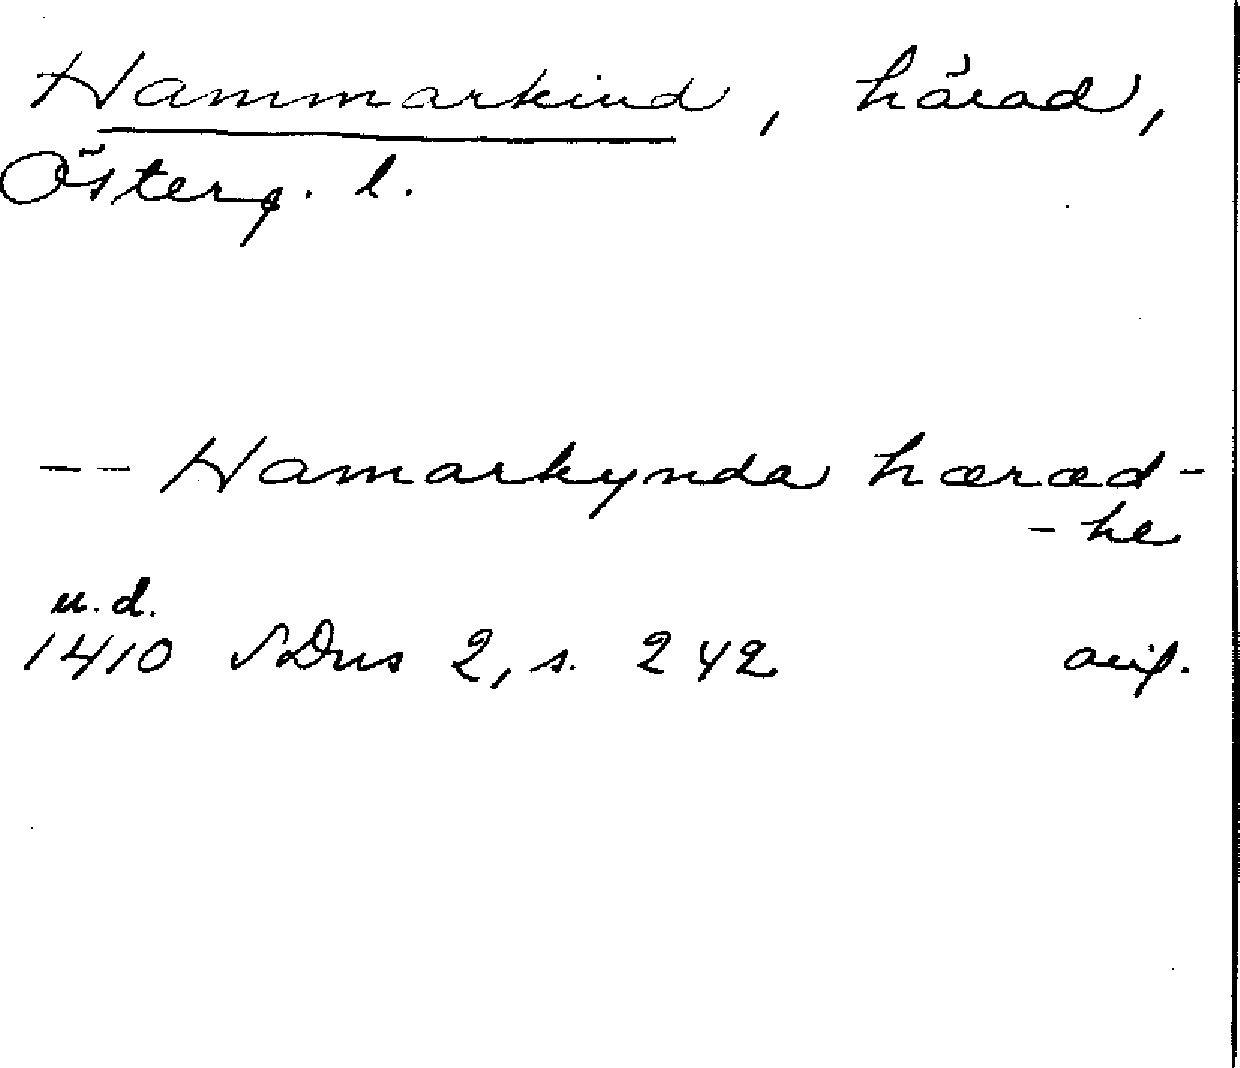 Hammarkind, härad,
Österg. l.
-- Hamarkynda hæræd-
- he
u.d.
1410 SDns 2, s. 242 avs.